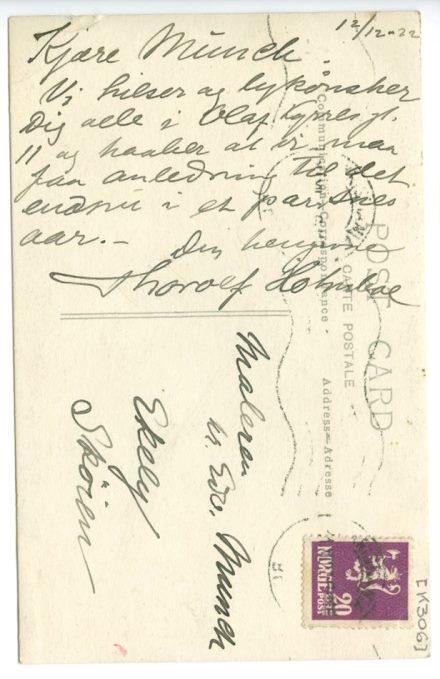 12/12-22
Kjære Munch.
Vi hilser og lykønsker
Dig alle i Olaf Kyrres gt.
11 og haaber at vi maa
faa anledning til det
endnu i et par snes
aar.-
Din hengivne
Thorolf Holmboe
Communication-Correspondance.
POST CARD
CARTE POSTALE
Address-Adresse
Maleren
hr. Edv. Munch
Ekely
Skøien
NORGE
POST
20
[K306]